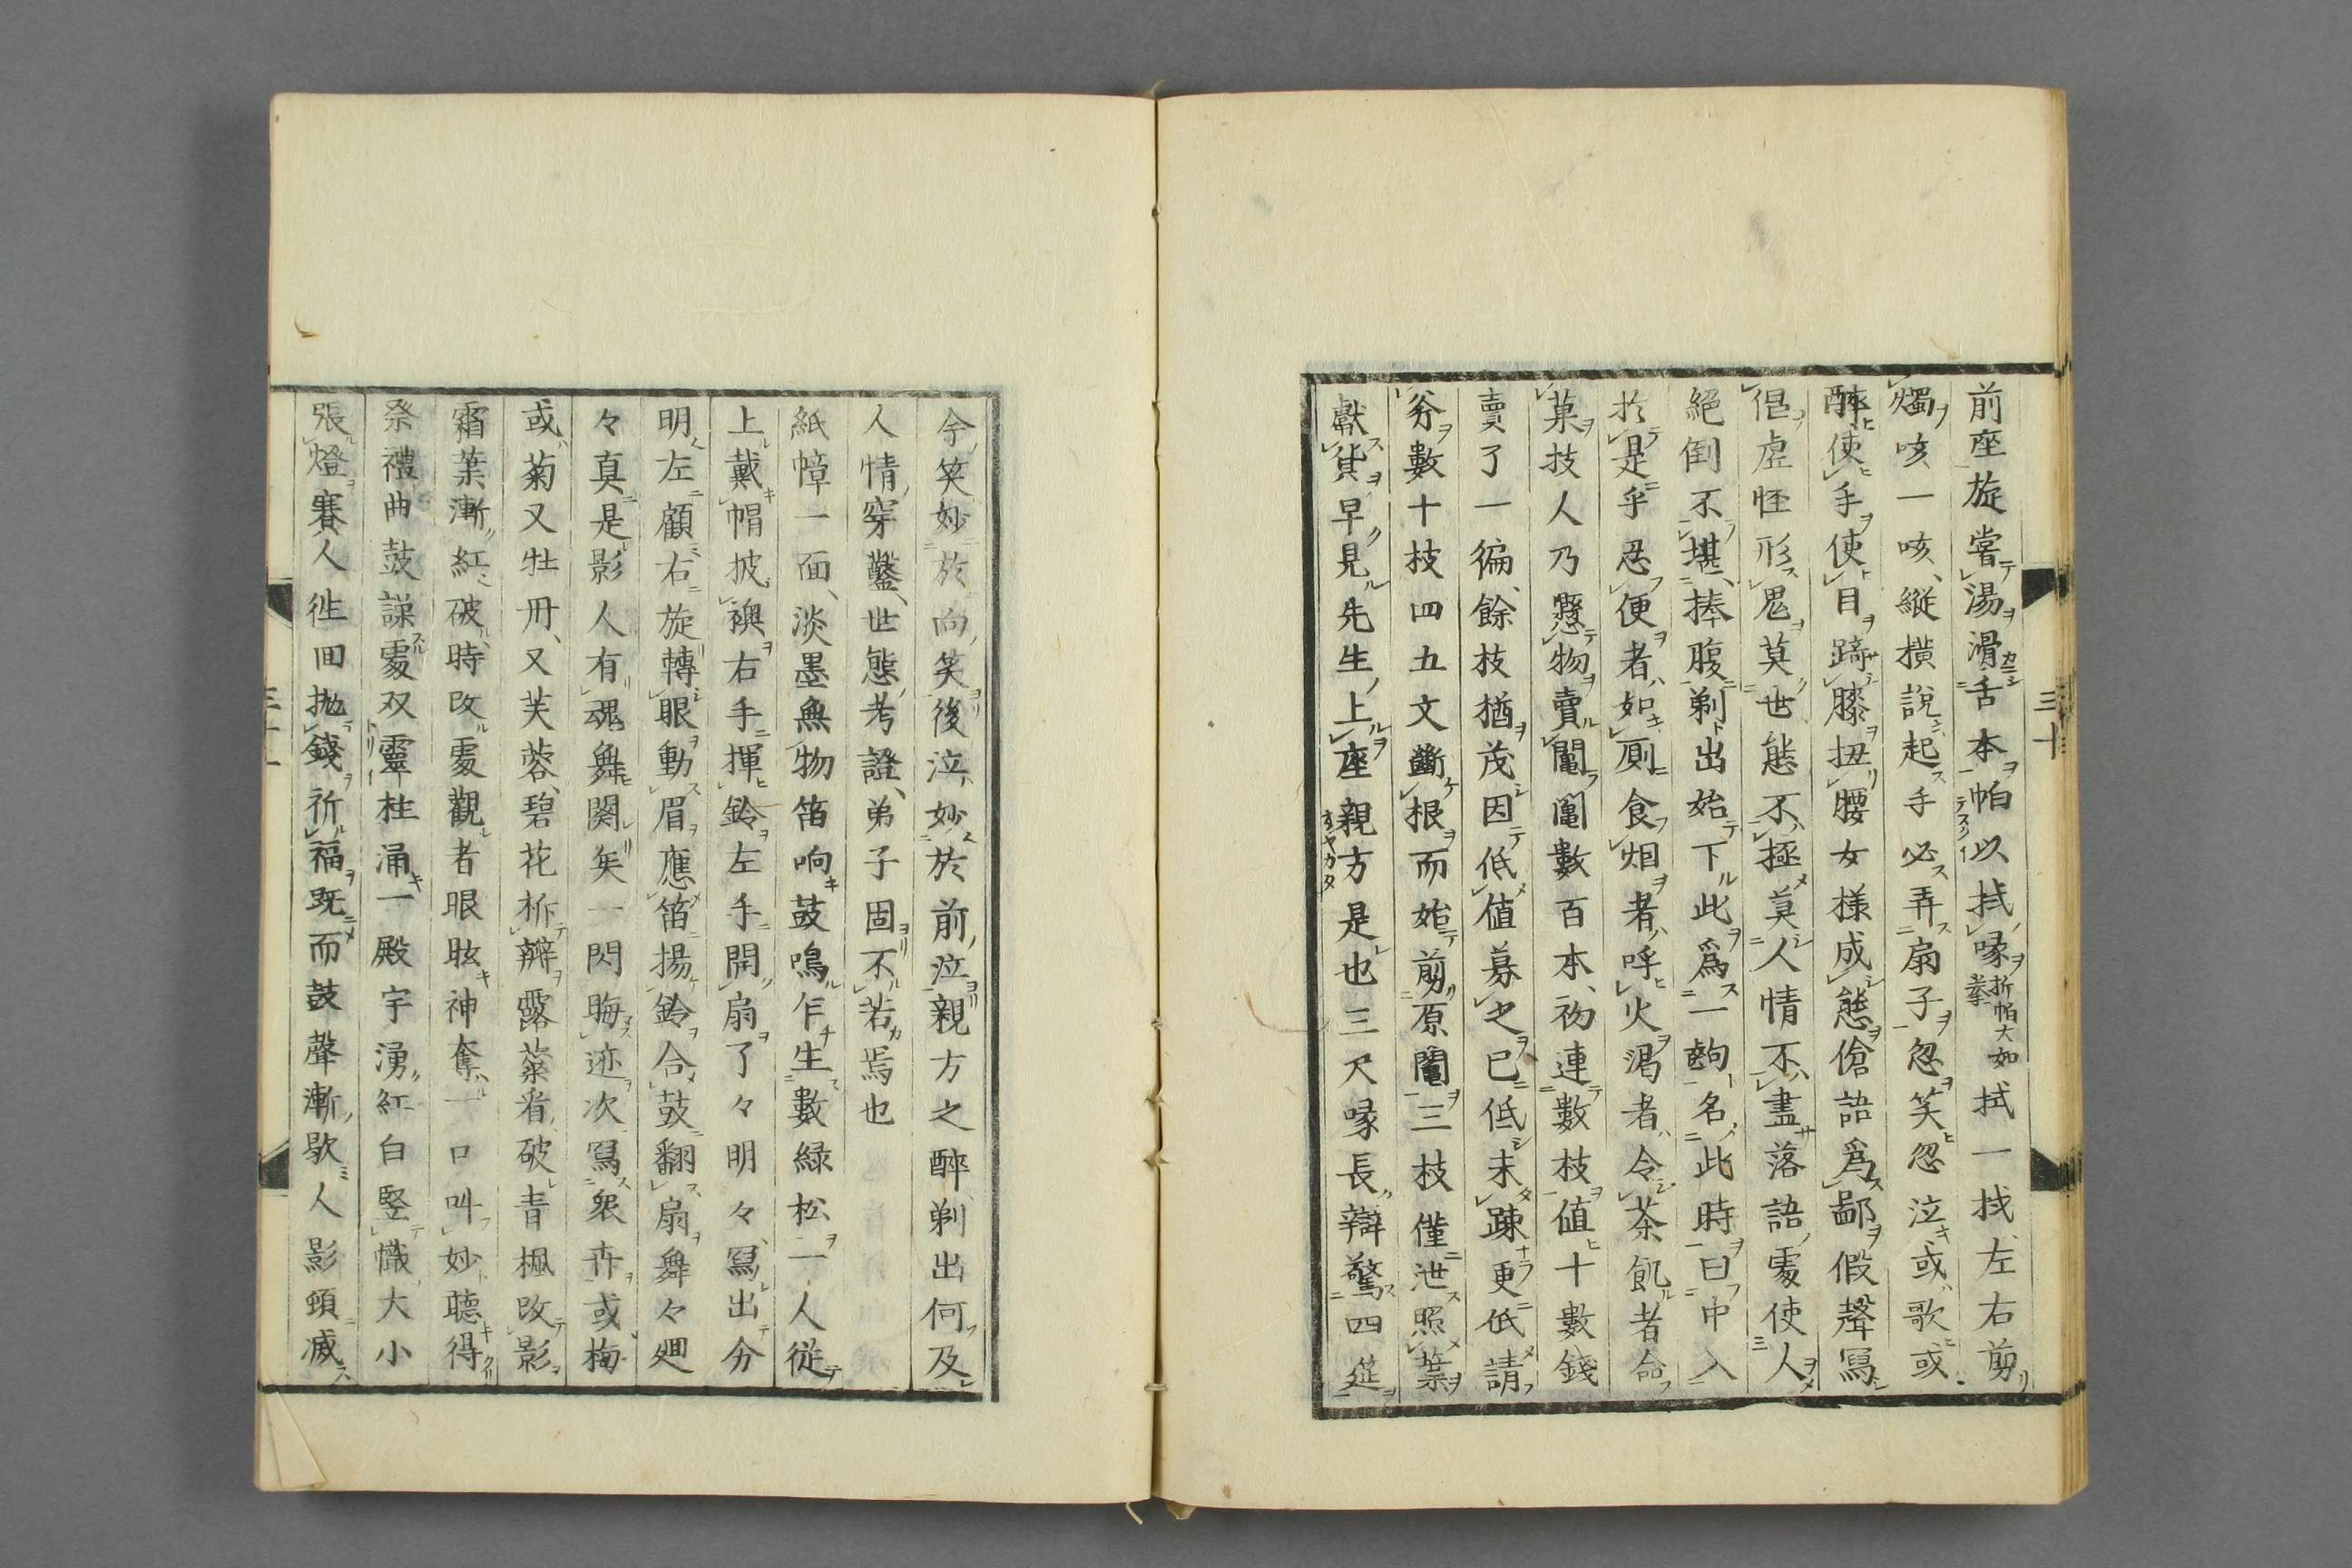 前座旋嘗湯滑舌本帕以拭喙折帕大如拳拭一拭左右剪
燭咳一咳縱橫說起手必弄扇子忽笑忽泣或歌或
醉使手使目蹄膝扭腰女樣成態傖語爲鄙假聲寫
倡虛怪形鬼莫世態不極莫人情不盡落語處使人
絕倒不堪捧腹剃出始下此爲一齣名此時曰中入
於是乎忍便者如厠食烟者呼火渴者令茶飢者命
菓技人乃懸物賣鬮鬮數百本初連數枝値十數錢
賣了一徧餘枝猶茂因低値募之已低未踈更低請
衆數十枝四五文斷根而始剪原鬮三枝僅泄照葉
獻貨早見先生上座親方是也三尺喙長辯驚四筵
三十
今笑妙於向笑後泣妙於前泣親方之醉剃出何及
人情穿鑿世態考證弟子固不若焉也
紙幛一面淡墨無物笛响鼓鳴乍生數綠松一人從
上戴帽披襖右手揮鈴左手開扇了々明々寫出分
明左顧右旋轉眼動眉應笛揚鈴合鼓翻扇舞々廻
々真是影人有魂舞関矣一閃晦迹次寫衆卉或梅
或菊又牡丹又芙蓉碧花析瓣露蘂看破青楓改影
霜葉漸紅破時改處觀者眼眩神奪一口叫妙聽得
祭禮曲鼓譟處双靈柱涌一殿宇湧紅白竪幟大小
張燈賽人徃回抛錢祈福既而鼓聲漸歇人影頓滅